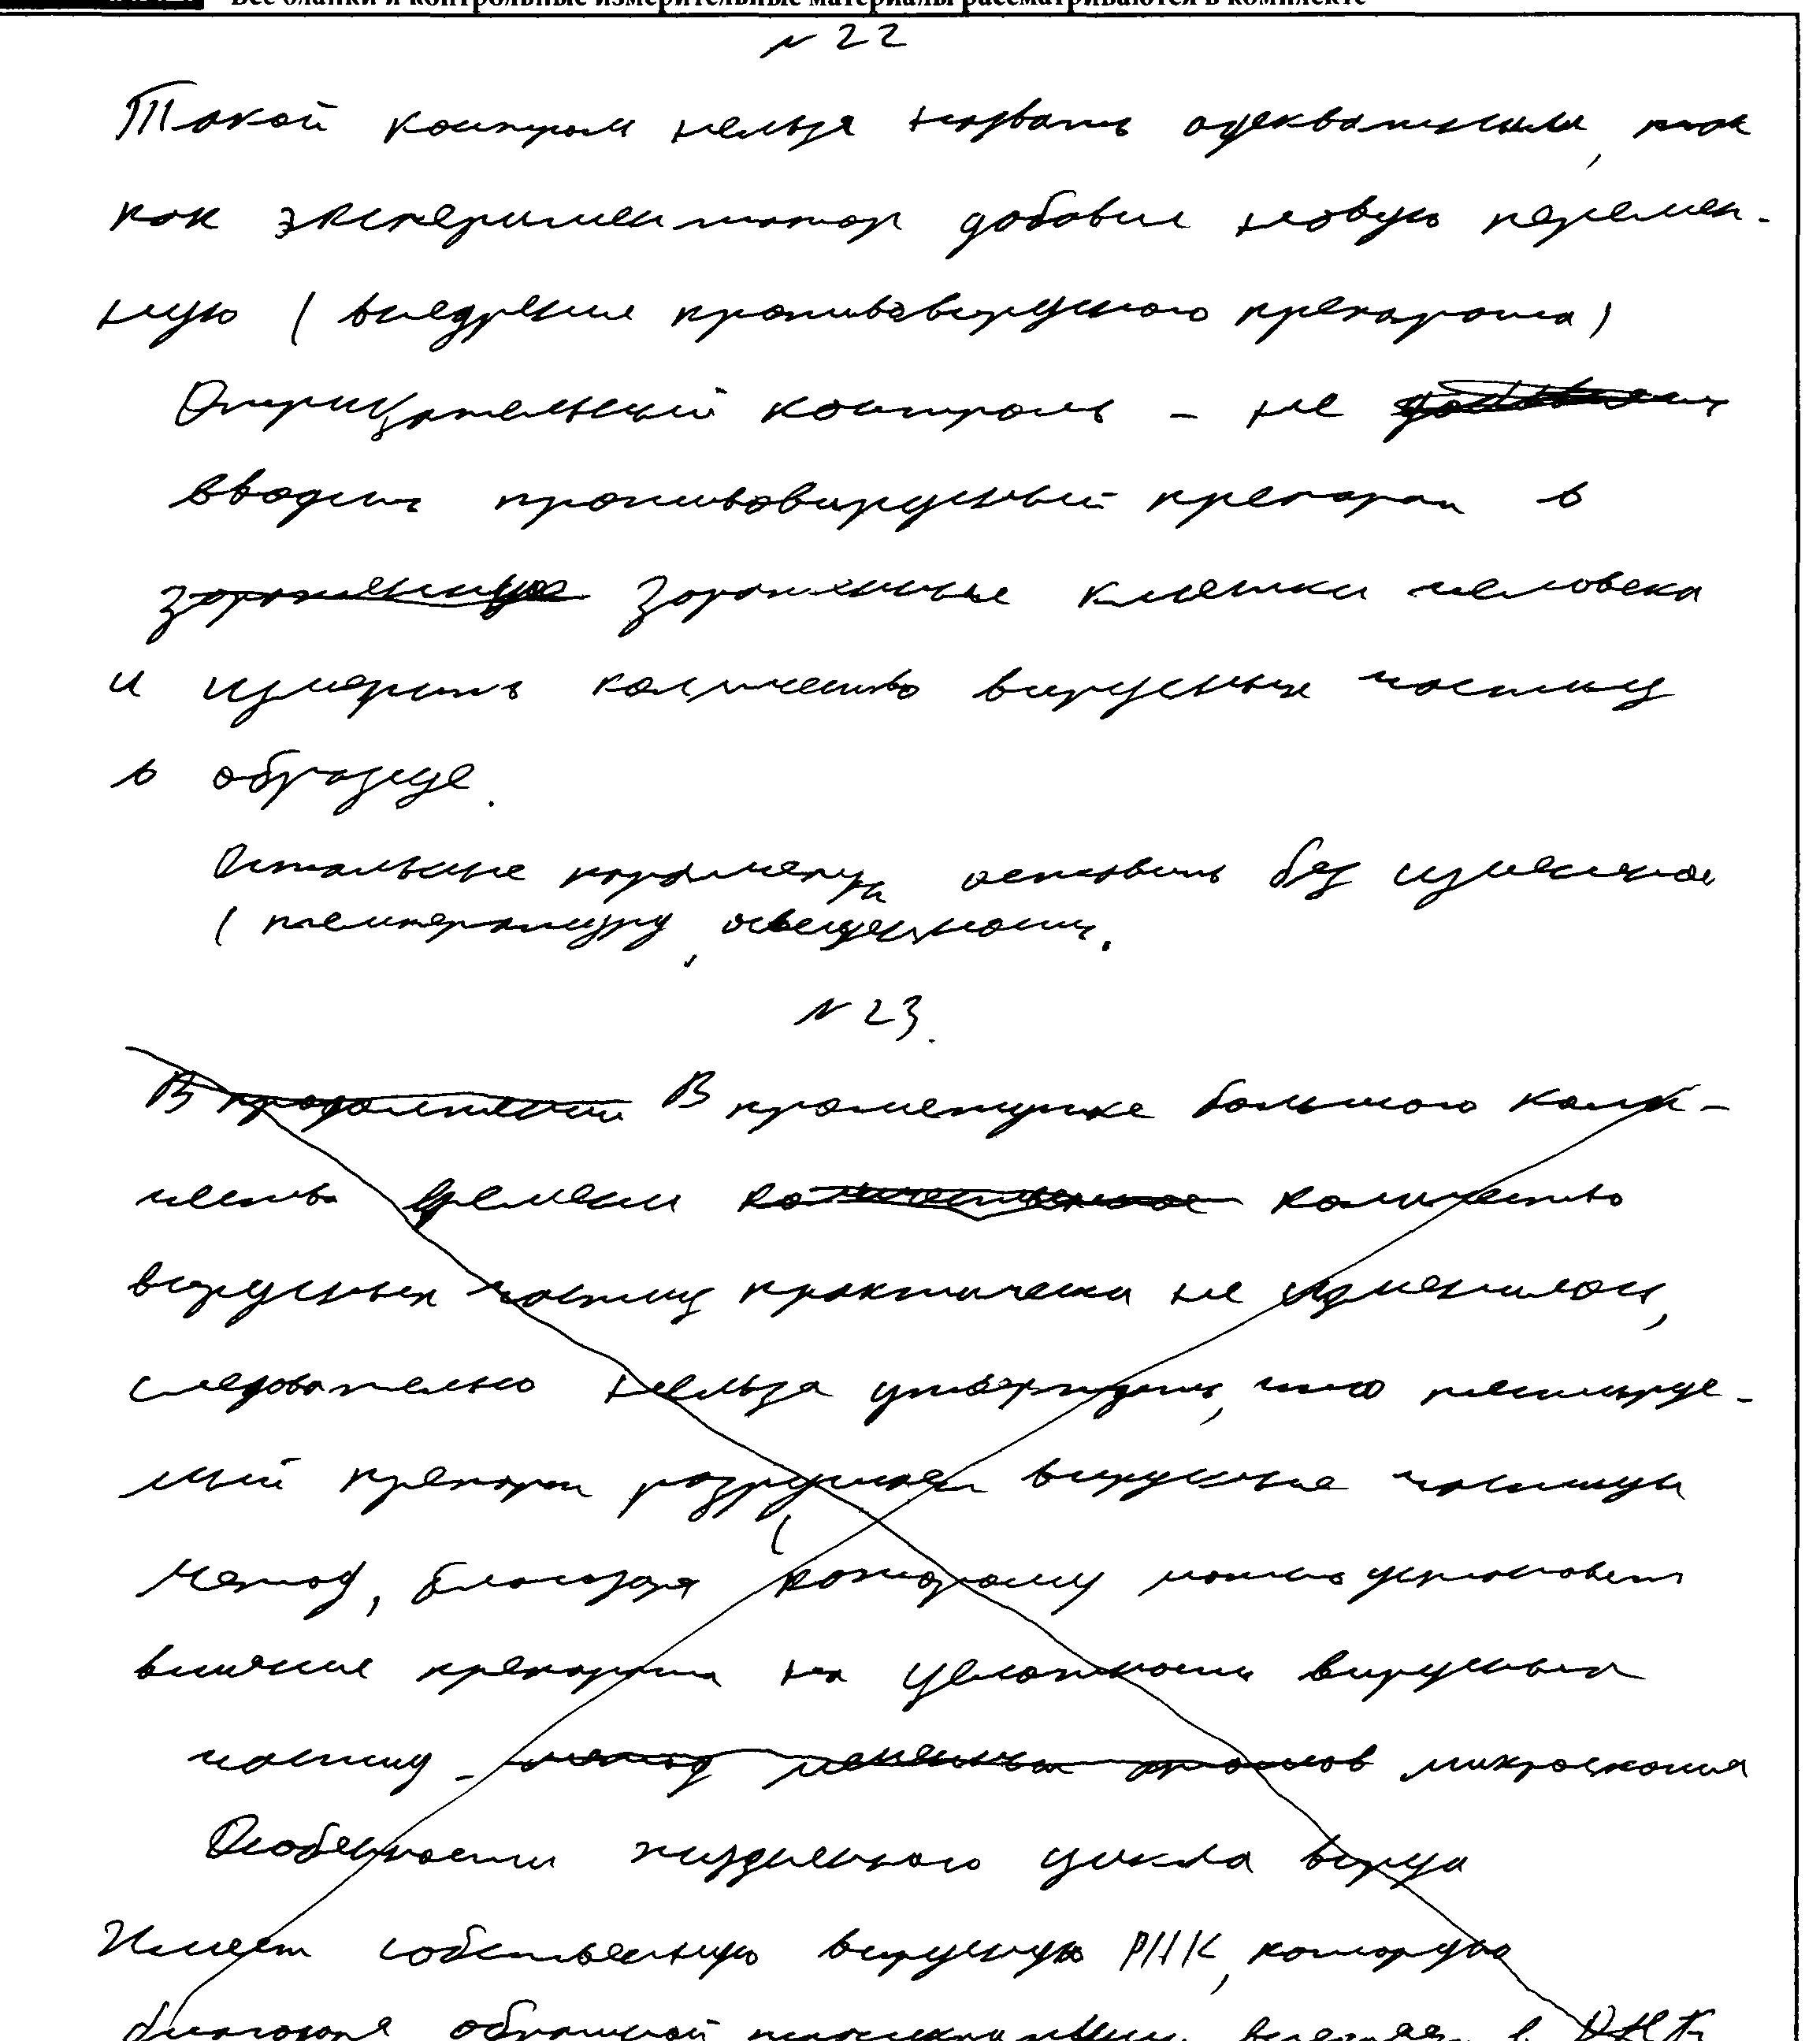 Все бланки и контрольные измерительные материалы рассматриваются в комплекте
№ 22
Такой контроль нельзя назвать адекватным, так
как экспериментатор добавил новую перемен-
ную (внедрение противовирусного препарата)
Отрицательный контроль - не
вводить противовирусный препарат в
зараженные зараженные клетки человека
и измерить количество вирусных частиц
в образце.
Остальные параметры оставить без изменения
(температуру, освещенность.
№ 23.
В В промежутке большого коли-
чества времени количество
вирусных частиц практически не изменилось,
следовательно нельзя утверждать, что тестируе-
мый препарат разрушает вирусные частицы
Метод, благодаря которому можно установить
влияние препарата на целостность вирусных
частиц - метод микроскопия
Особенности жизненного цикла вируса
Имеет собственную вирусную РНК, которую
благодаря обратной транскрипции в ДНК